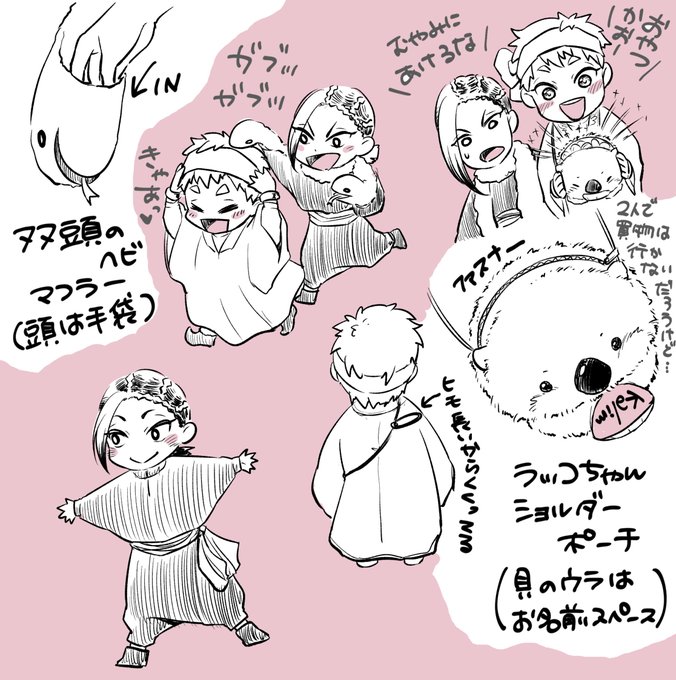 IN
ガブッ
ガブッ
きゃあっ♡
双頭の
ヘビ
マフラー
(頭は手袋)
むやみに
あけるな
おやつ
かお〜
2人で
買物は
行か
ない
だろうけど…
ファスナー
Kalim
ヒモ長いからくくってる
ラッコちゃん
ショルダー
ポーチ
(貝のウラは
お名前スペース)